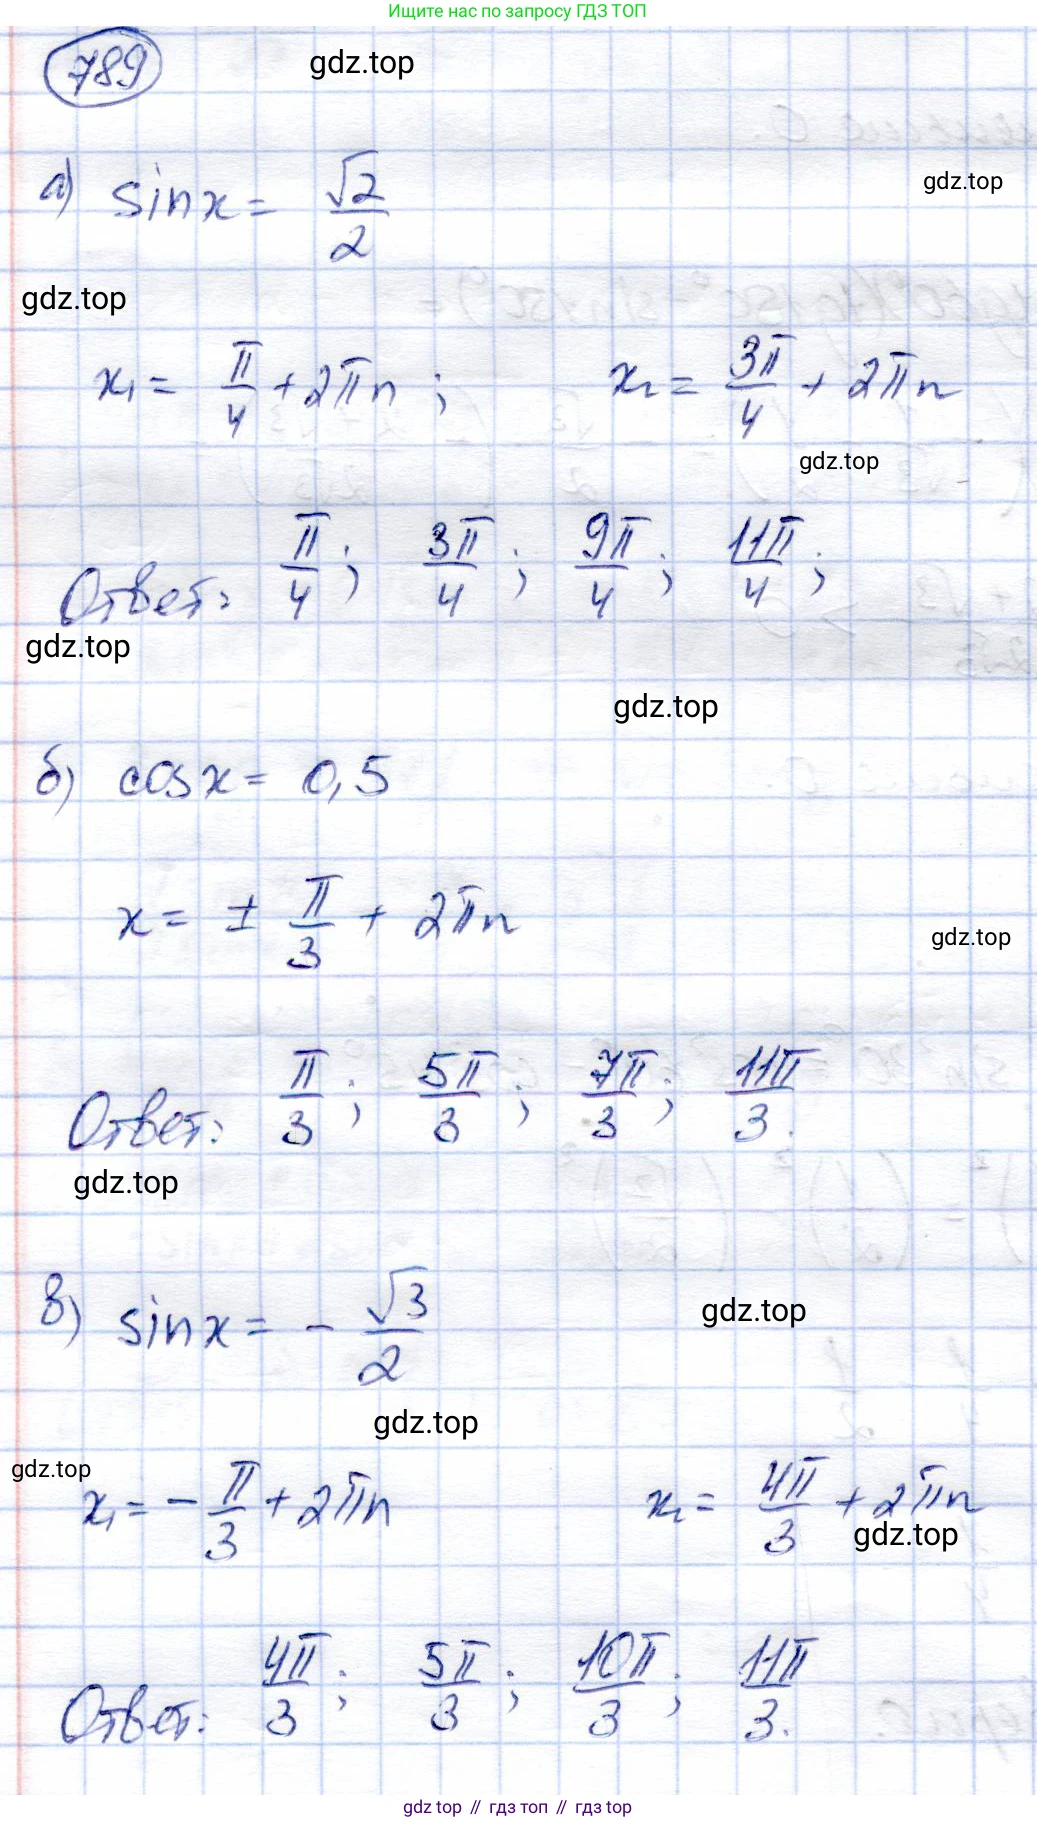 Ищите нас по запросу ГДЗ ТОП
789
gdz.top
а) sin x = √2/2
gdz.top
gdz.top
x₁ = π/4 + 2πn ; x₂ = 3π/4 + 2πn
gdz.top
Ответ: π/4 ; 3π/4 ; 9π/4 ; 11π/4 ;
gdz.top
gdz.top
б) cos x = 0,5
x = ± π/3 + 2πn
gdz.top
Ответ: π/3 ; 5π/3 ; 7π/3 ; 11π/3 .
gdz.top
в) sin x = - √3/2
gdz.top
gdz.top
gdz.top
x₁ = - π/3 + 2πn x₂ = 4π/3 + 2πn
gdz.top
Ответ: 4π/3 ; 5π/3 ; 10π/3 ; 11π/3 .
gdz top // гдз топ // gdz top